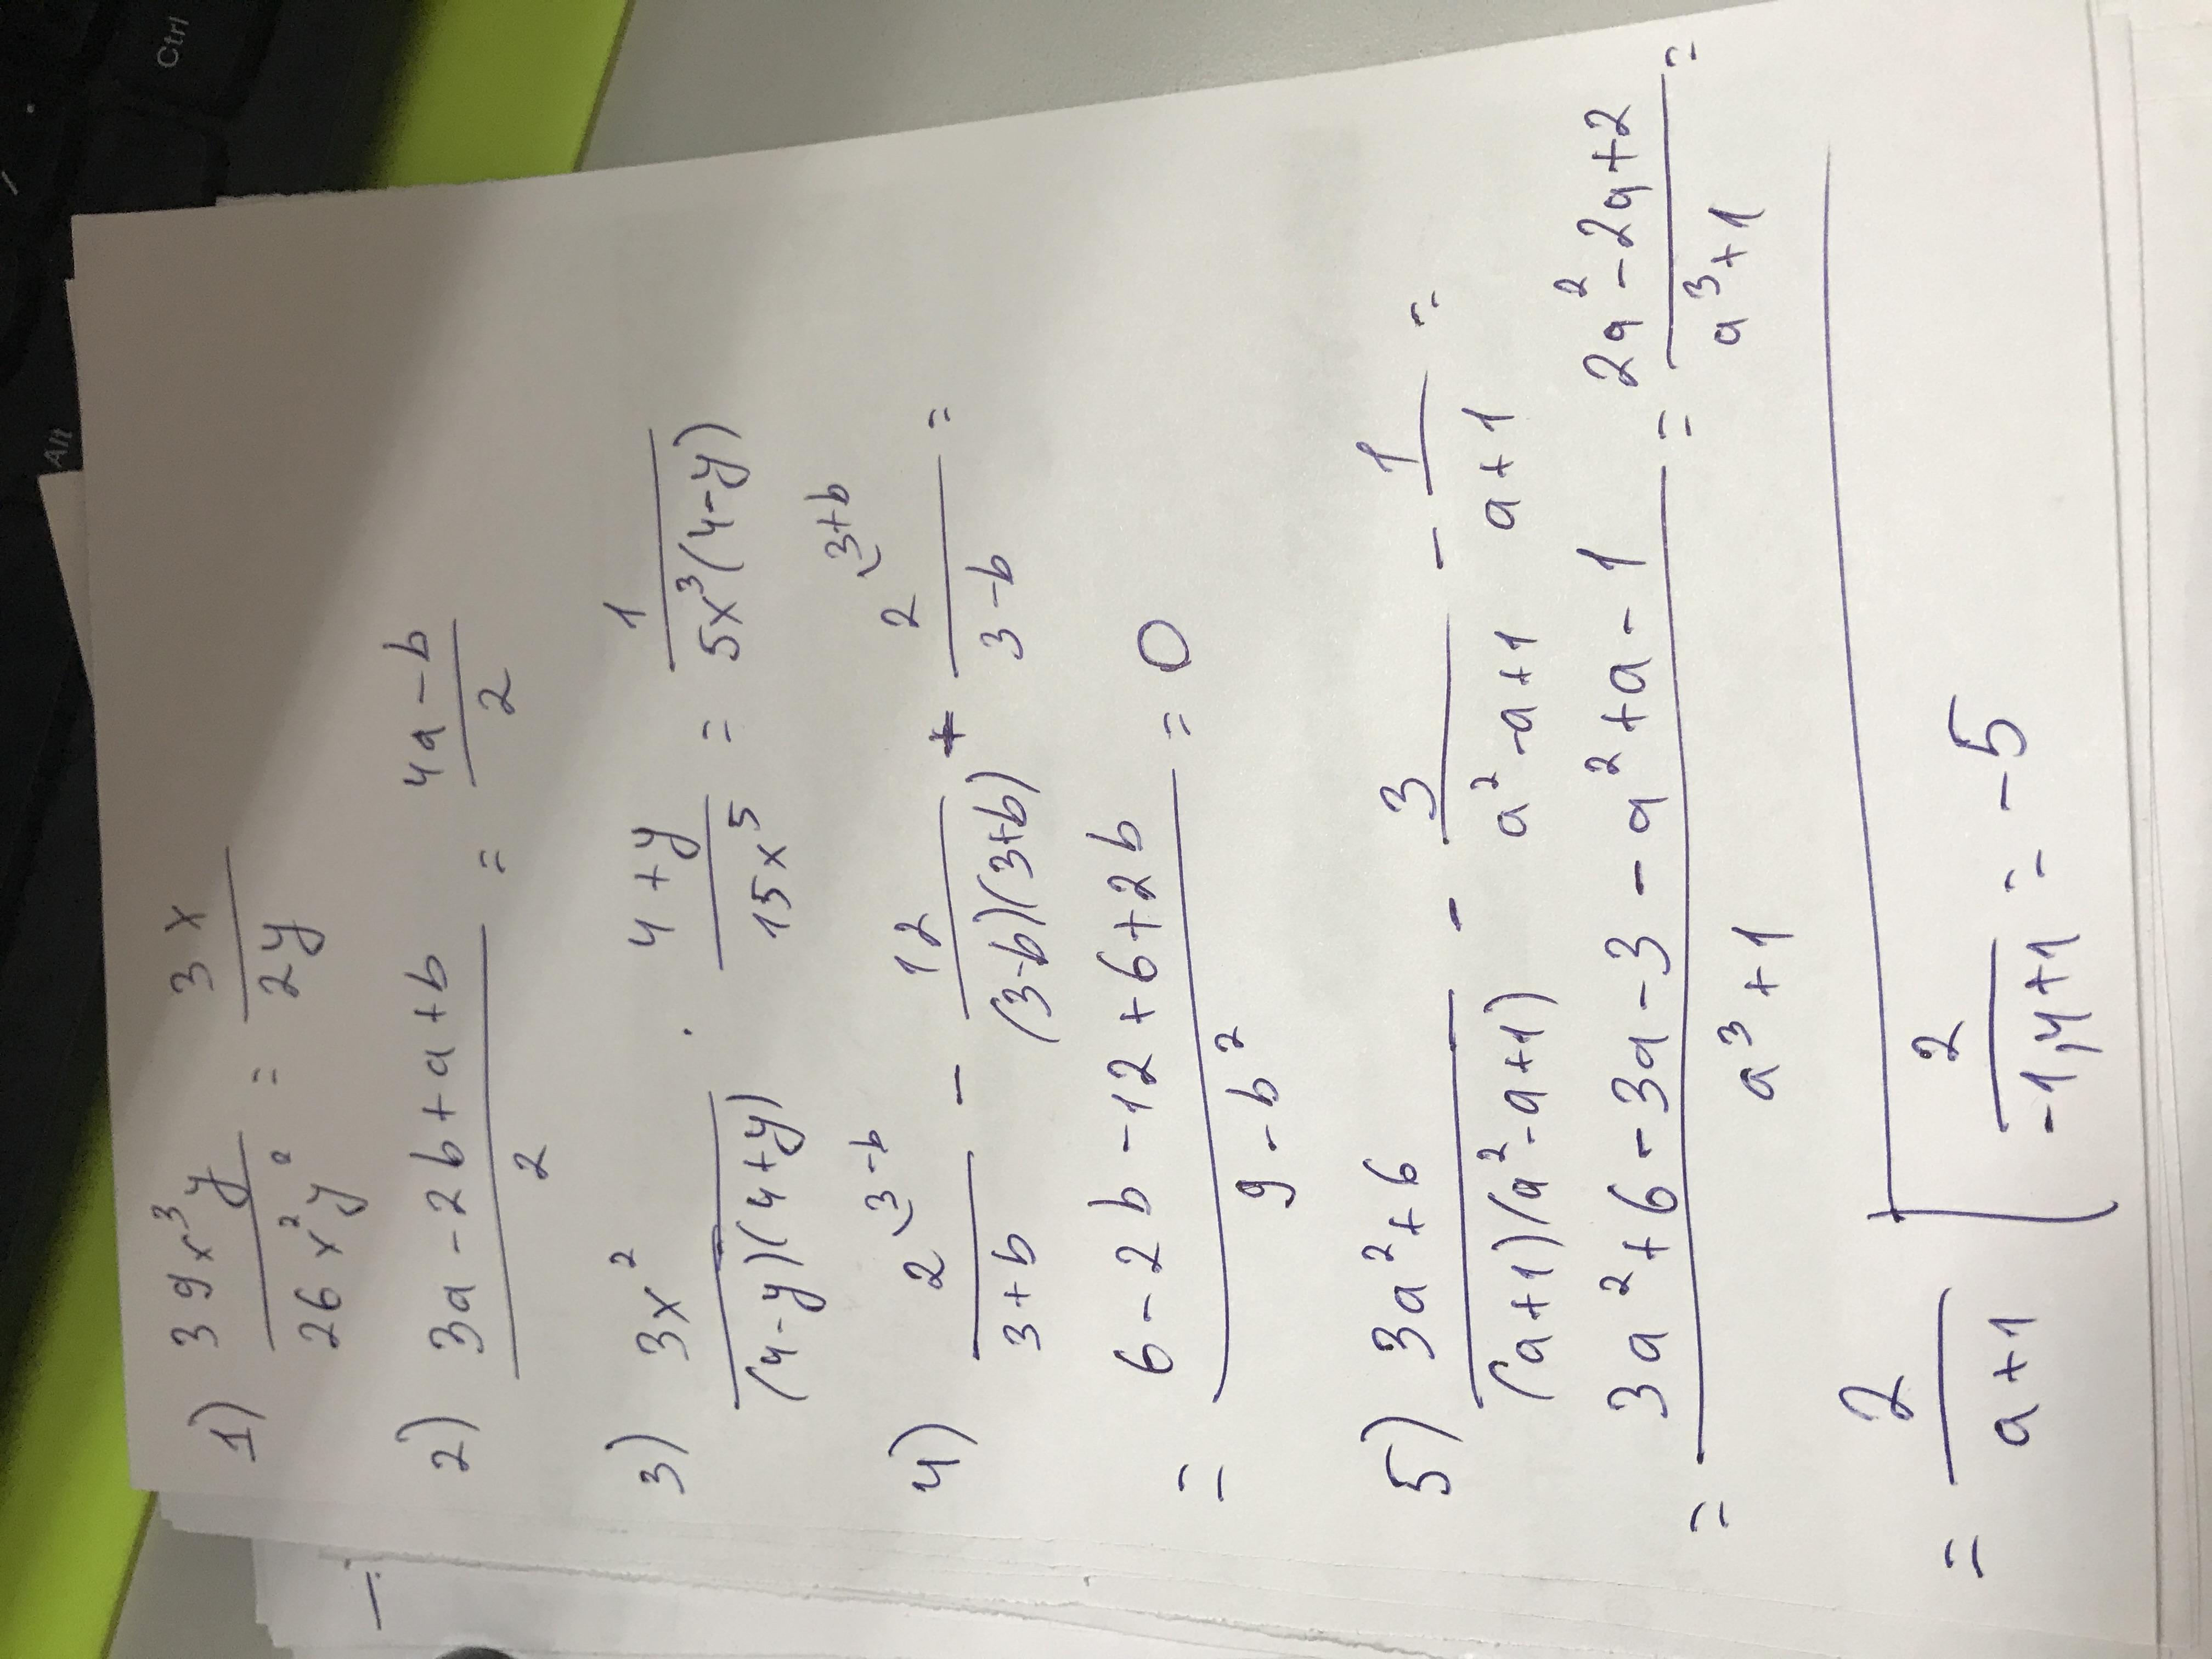 1) 39x³y / 26x²y² = 3x / 2y
2) 3a - 2b + a + b / 2 = 4a - b / 2
3) 3x² / (4-y)(4+y) · 4+y / 15x⁵ = 1 / 5x³(4-y)
4) 2 \3-b / 3+b - 12 / (3-b)(3+b) + 2 \3+b / 3-b =
= 6 - 2b - 12 + 6 + 2b / 9 - b² = 0
5) 3a² + 6 / (a+1)(a²-a+1) - 3 / a²-a+1 - 1 / a+1 =
= 3a² + 6 - 3a - 3 - a² + a - 1 / a³ + 1 = 2a² - 2a + 2 / a³ + 1 =
= 2 / a+1
2 / -1,4+1 = -5
Ctrl
Alt